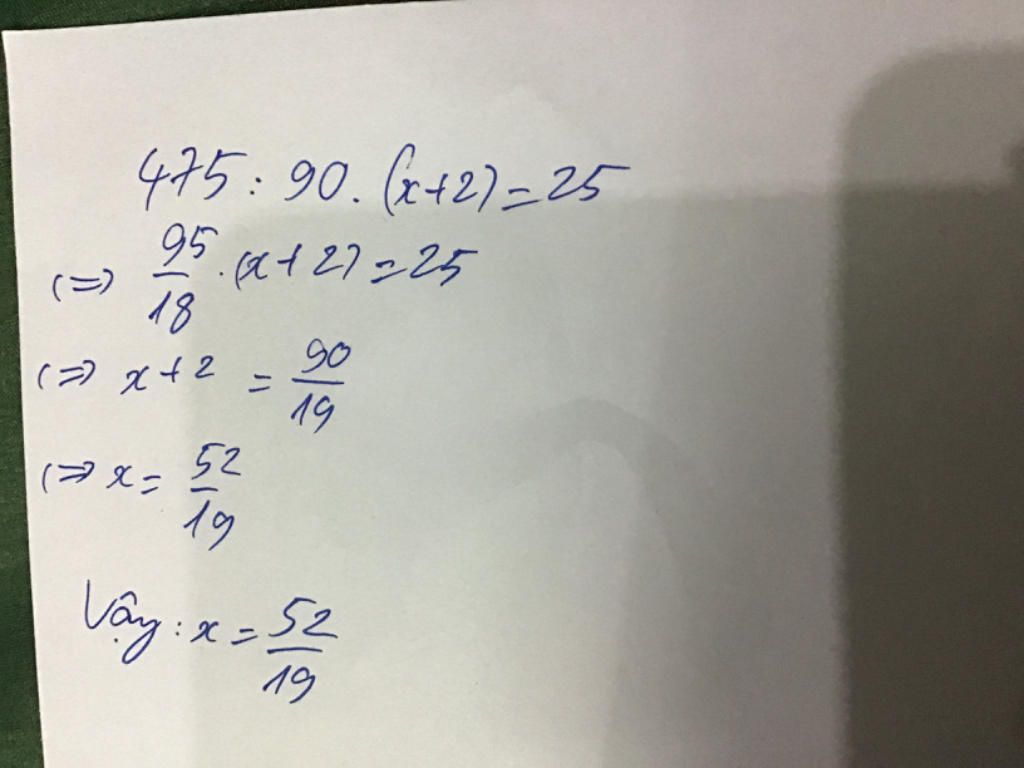 475 : 90 . (x+2) = 25
(=) 95/18 . (x+2) = 25
(=) x+2 = 90/19
(=) x = 52/19
Vậy : x = 52/19